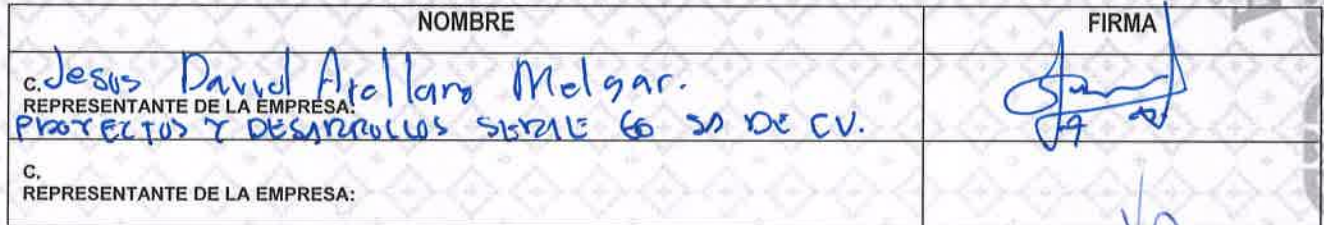 NOMBRE FIRMA
C. Jesus David Arellano Melgar.
REPRESENTANTE DE LA EMPRESA:
PROYECTOS Y DESARROLLOS SA DE CV.
C.
REPRESENTANTE DE LA EMPRESA: